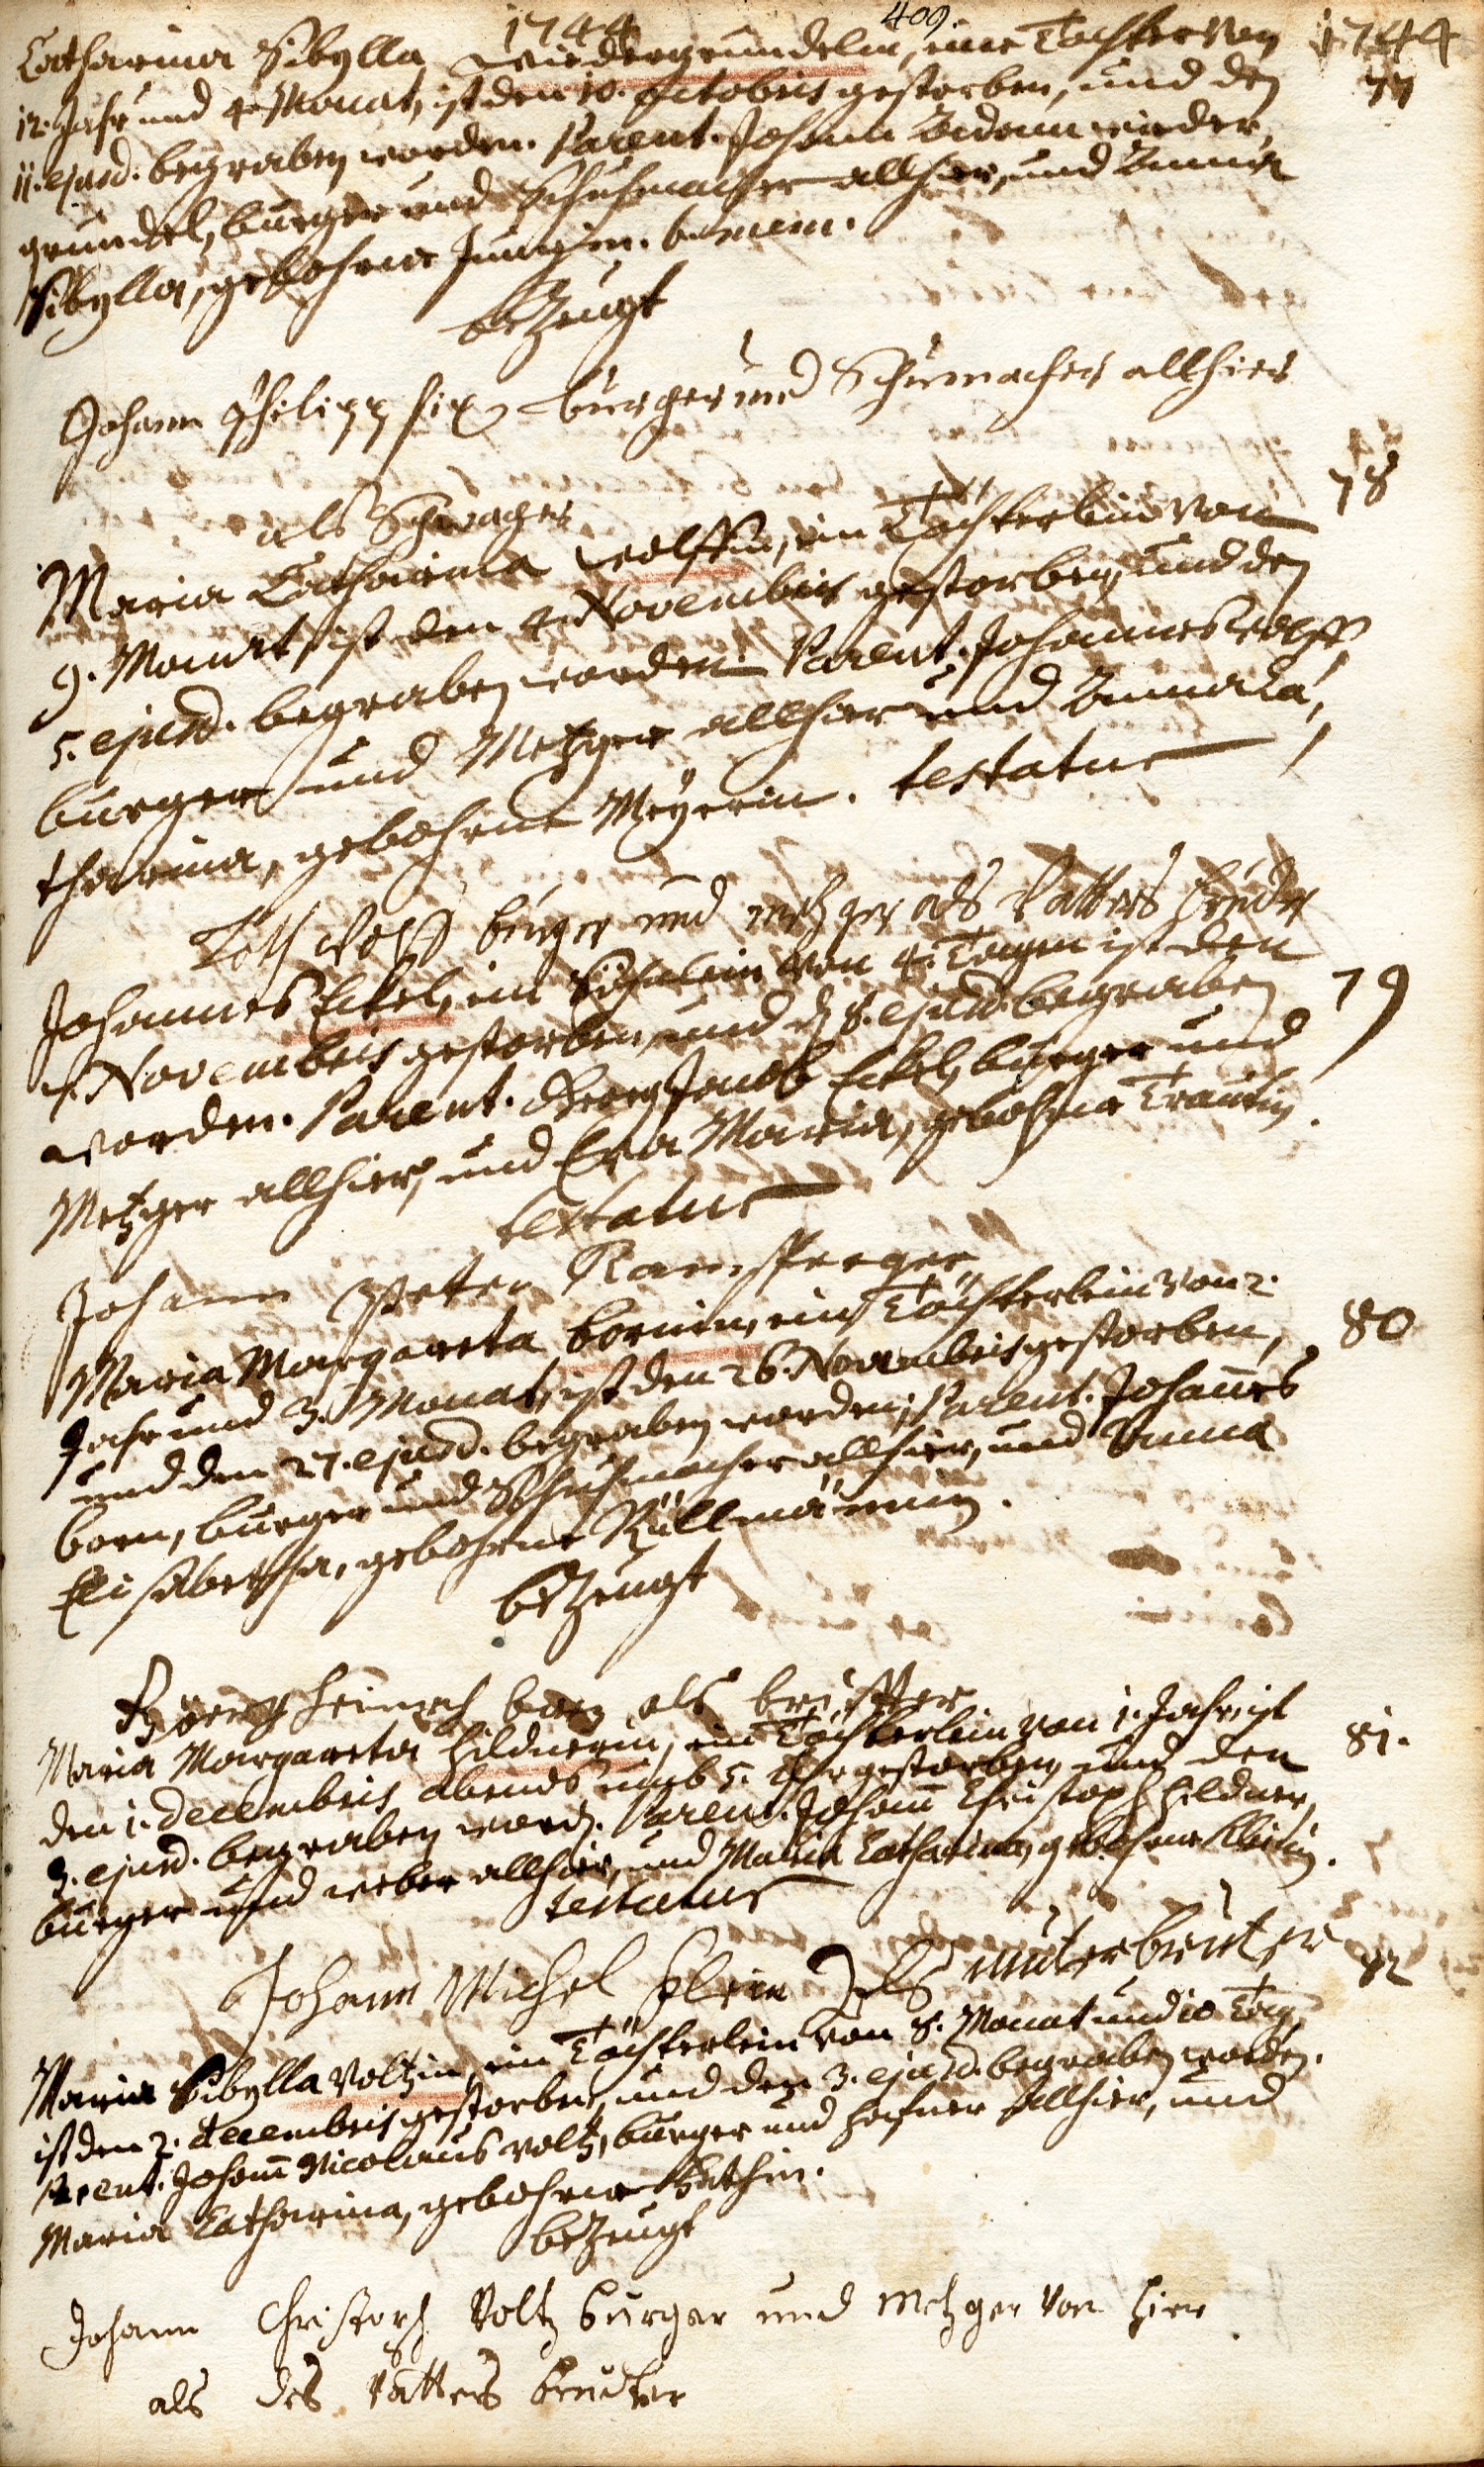 409.
1744
1744
Catharina Sibylla Wiedergrundelin, eine Tochter von
77
12. Jahr und 4. Monat, ist den 10. Octobris gestorben, und den
11. ejusd. begraben worden. Parent. Johann Adam wieder,
grundel, burger und Schuhmacher allhier, und Anna
Sibylla, gebohrne
bezeugt
Johann Philipp Six burger und Schumacher allhier
als Schwager
78
Maria Catharina Wolffin, ein Töchterlein von
9. Monat ist den 4. Novembris gestorben, und den
5. ejusd. begraben worden. Parent. Johannes Wolff,
burger und Metzger allhier und Anna Ca,
tharina, gebohrne Meyerin. testatur
Wolff burger und metzger als Vatters bruder
79
Johannes Eckel, ein Söhnlein von 4. Tagen ist den
Novembris gestorben, und d. 8. ejusd. begraben
worden. Parent. Georg Jacob Eckel, burger und
Metzger allhier, und Eva Maria, gebohrne Trautin.
testatur
Johann Peter
80
Maria Margareta bornin, ein Töchterlein von 2.
Jahr und 3. Monat, ist den 26. Novembris gestorben,
und den 27. ejusd. begraben worden; Parent. Johannes
born, burger und Schuhmacher allhier, und Anna
Elisabetha, gebohrne Küllmännin.
bezeugt
Georg Heinrich born als
81.
Maria Margareta Hildnerin, ein Töchterlein von 1. Jahr, ist
den 1. decembris abends umb 5. Uhr gestorben, und den
3. ejusd. begraben word. Parent. Johann Christoph Hildner,
burger und weber allhier, und Maria Catharina, gebohrne Kleinin.
testatur
Johann Michel Klein Als mutterbruter
82
Maria Sibylla Voltzin, ein Töchterlein von 8. Monat und 10 Tag,
ist den 2. decembris gestorben, und den 3. ejusd. begraben worden.
Parent. Johann Nicolaus Voltz, burger und Hafner allhier, und
Maria Catharina, gebohrne
bezeugt
Johann Christoph Voltz burger und Metzger von hier
als des Vatters bruder